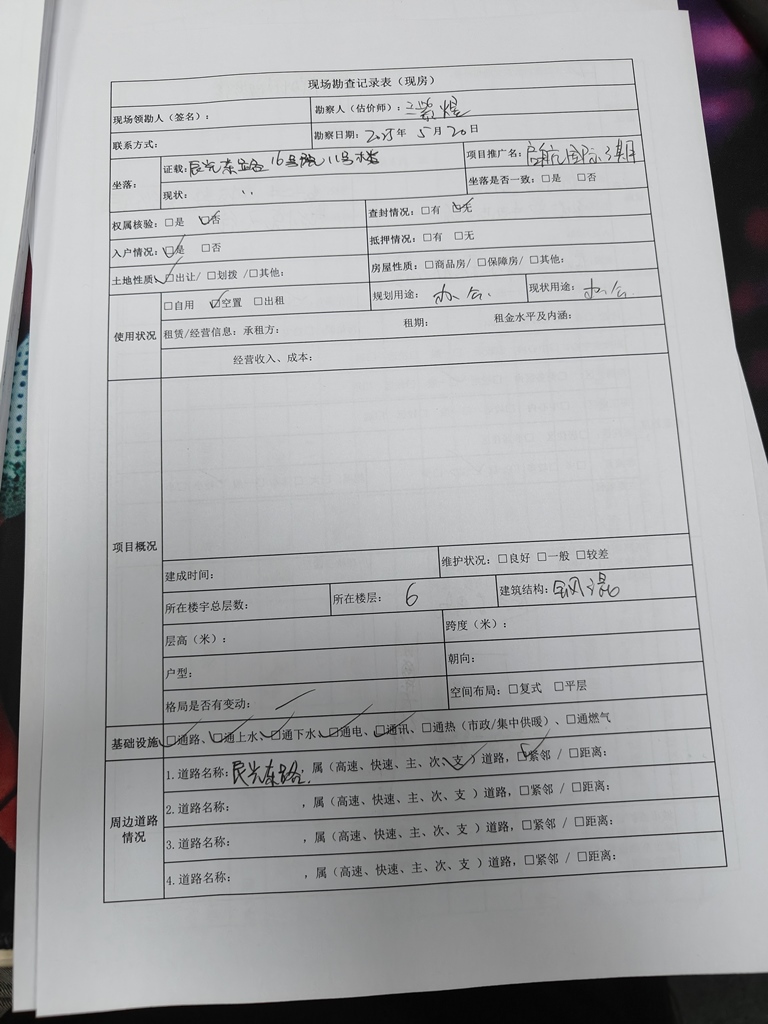 现场勘查记录表（现房）
现场领勘人（签名）： 勘察人（估价师）：
联系方式： 勘察日期：2025年5月20日
坐落： 证载：民光东路16号院11号楼 项目推广名：启航国际3期
现状： 〃 坐落是否一致：□是 □否
权属核验：□是 ☑否 查封情况：□有 ☑无
入户情况：☑是 □否 抵押情况：□有 □无
土地性质：☑出让/ □划拨 /□其他： 房屋性质：□商品房/ □保障房/ □其他：
使用状况 □自用 ☑空置 □出租 规划用途：办公 现状用途：办公
租赁/经营信息：承租方： 租期： 租金水平及内涵：
经营收入、成本：
项目概况
建成时间： 维护状况：□良好 □一般 □较差
所在楼宇总层数： 所在楼层：6 建筑结构：钢混
层高（米）： 跨度（米）：
户型： 朝向：
格局是否有变动： 空间布局：□复式 □平层
基础设施 ☑通路、☑通上水、☑通下水、☑通电、☑通讯、□通热（市政/集中供暖）、□通燃气
周边道路情况
1.道路名称：民光东路，属（高速、快速、主、次、支✓）道路，☑紧邻 / □距离：
2.道路名称： ，属（高速、快速、主、次、支 ）道路，□紧邻 / □距离：
3.道路名称： ，属（高速、快速、主、次、支 ）道路，□紧邻 / □距离：
4.道路名称： ，属（高速、快速、主、次、支 ）道路，□紧邻 / □距离：